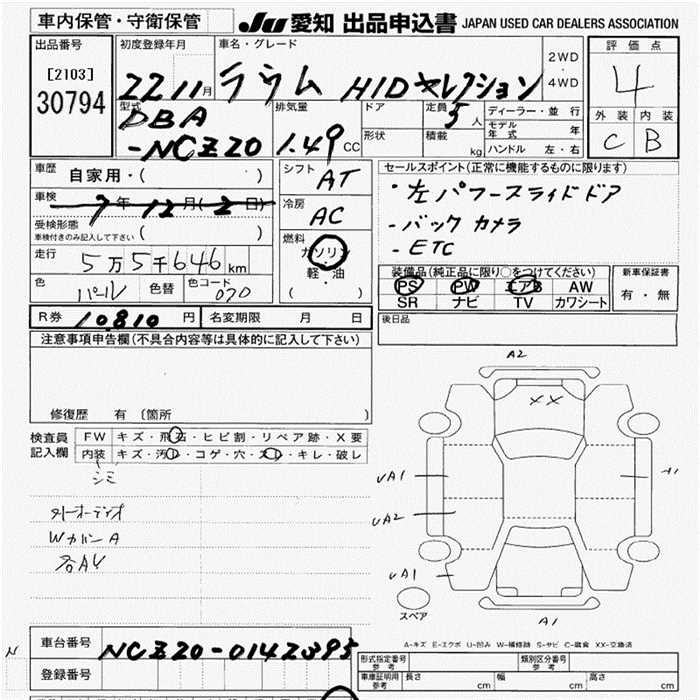 車内保管・守衛保管
JU 愛知 出品申込書 JAPAN USED CAR DEALERS ASSOCIATION
出品番号
[2103]
30794
初度登録年月
22 11月
車名・グレード
ラウム HIDセレクション
2WD
・
4WD
評価点
4
外装 内装
C B
型式
DBA
-NCZ20
排気量
1.49 CC
ドア
形状
定員
5人
積載
kg
ディーラー・並行
モデル年式 年
ハンドル 左・右
車歴
自家用・( )
車検
7年12月(2日)
受検形態
車検付きのみ記入して下さい ( )
走行
5万5千646km
色
パール
色替
色コード
070
シフト
AT
冷房
AC
燃料
ガソリン
・
軽・油
( )
セールスポイント(正常に機能するものに限ります)
・左パワースライドドア
-バックカメラ
-ETC
装備品(純正品に限り○をつけてください)
PS PW エアB AW
SR ナビ TV カワシート
新車保証書
有・無
後日品
R券 10.810 円
名変期限 月 日
注意事項申告欄(不具合内容等は具体的に記入して下さい)
修復歴 有 (箇所 )
検査員
記入欄
FW キズ・飛石・ヒビ割・リペア跡・X要
内装 キズ・汚れ・コゲ・穴・スレ・キレ・破レ
シミ
WカバーA
各AU
A2
XX
UA1
UA2
UA1
A1
スペア
A1
A-キズ E-エクボ U-凹み W-補修跡 S-サビ C-腐食 XX-交換済
N
車台番号
NCZ20-0142395
登録番号
形式指定番号
参考
類別区分番号
参考
車庫証明用
参考
長さ cm
幅 cm
高さ cm